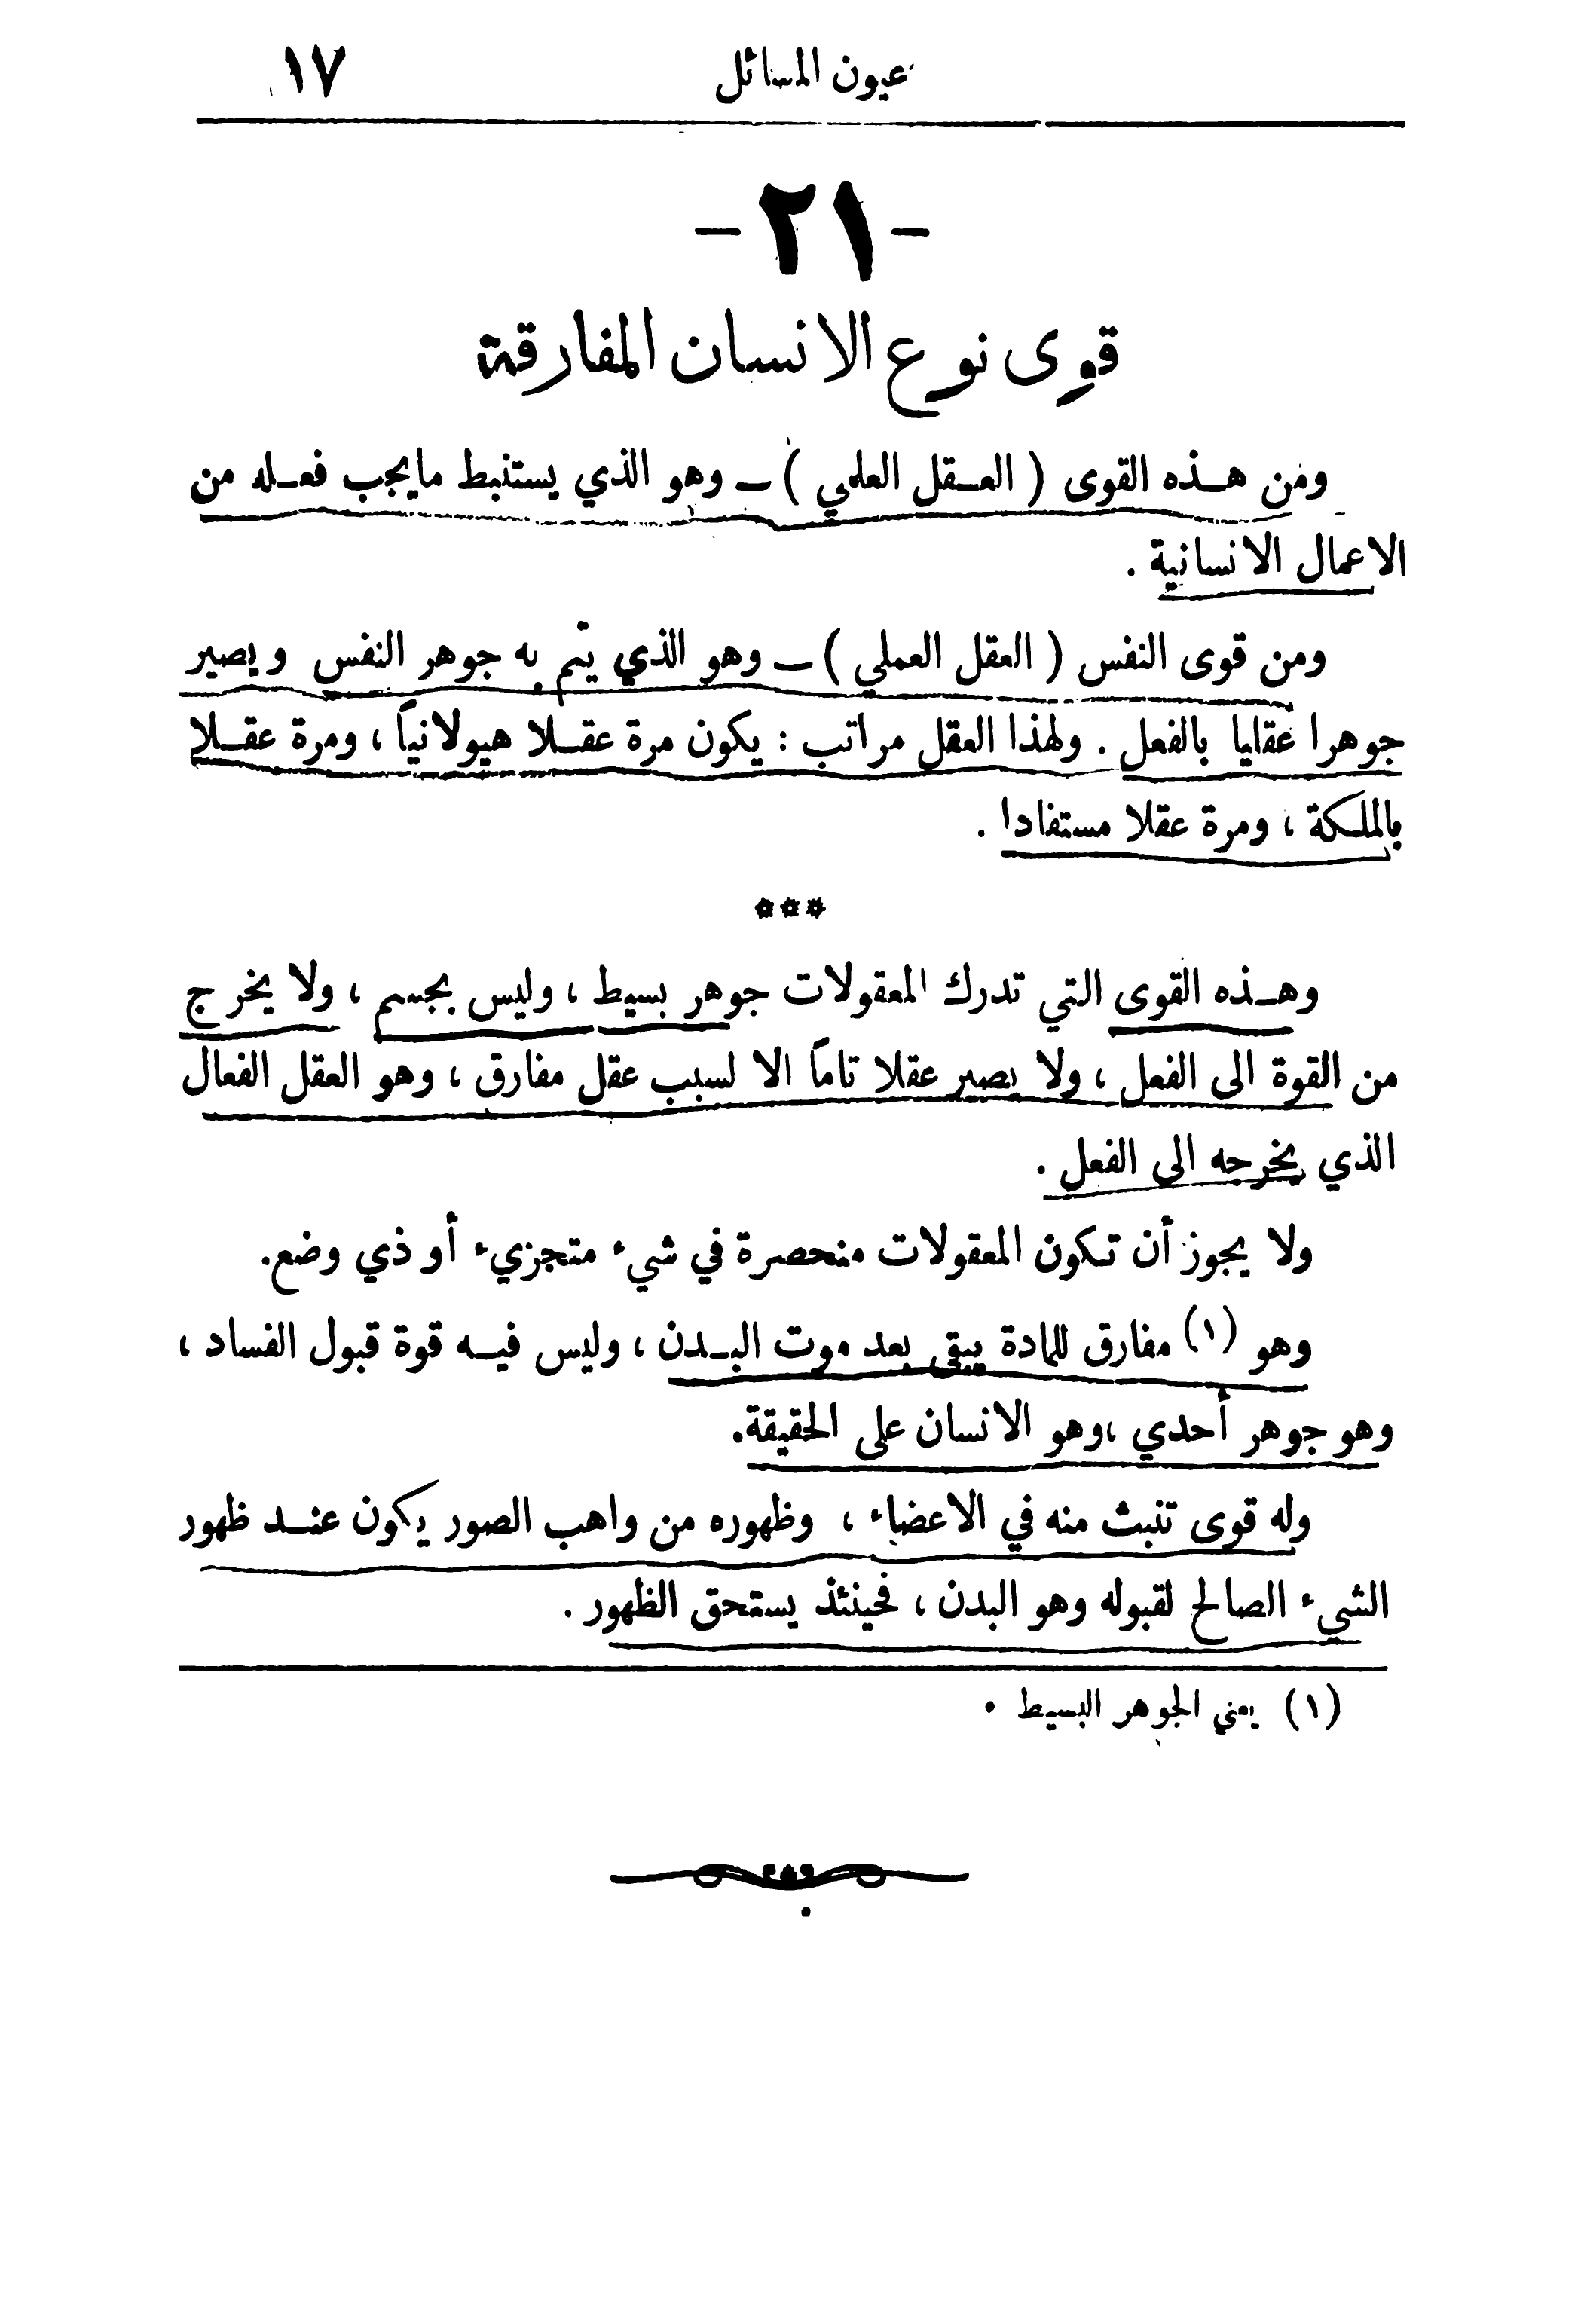 عيون المسائل ١٧
- ٢١ -
قوى نوع الانسان المفارقة
ومن هـذه القوى ( العـقل العلمي ) ــ وهو الذي يستنبط مايجب فعـله من
الاعمال الانسانية .
ومن قوى النفس ( العقل العملي ) ــ وهو الذي يتم به جوهر النفس ويصير
جوهرا عقليا بالفعل . ولهذا العقل مراتب : يكون مرة عقـلا هيولانياً ، ومرة عقـلا
بالملكة ، ومرة عقلا مستفادا .
***
وهـذه القوى التي تدرك المعقولات جوهر بسيط ، وليس بجسم ، ولا يخرج
من القوة الى الفعل ، ولا يصير عقلا تاماً الا لسبب عقل مفارق ، وهو العقل الفعال
الذي يخرجه الى الفعل .
ولا يجوز أن تكون المعقولات منحصرة في شيء متجزيء أو ذي وضع.
وهو (١) مفارق للمادة يبقى بعد موت البـدن ، وليس فيـه قوة قبول الفساد ،
وهو جوهر أحدي ،وهو الانسان على الحقيقة.
وله قوى تنبث منه في الاعضاء ، وظهوره من واهب الصور يكون عنـد ظهور
الشيء الصالح لقبوله وهو البدن ، فحينئذ يستحق الظهور .
(١) يعني الجوهر البسيط .